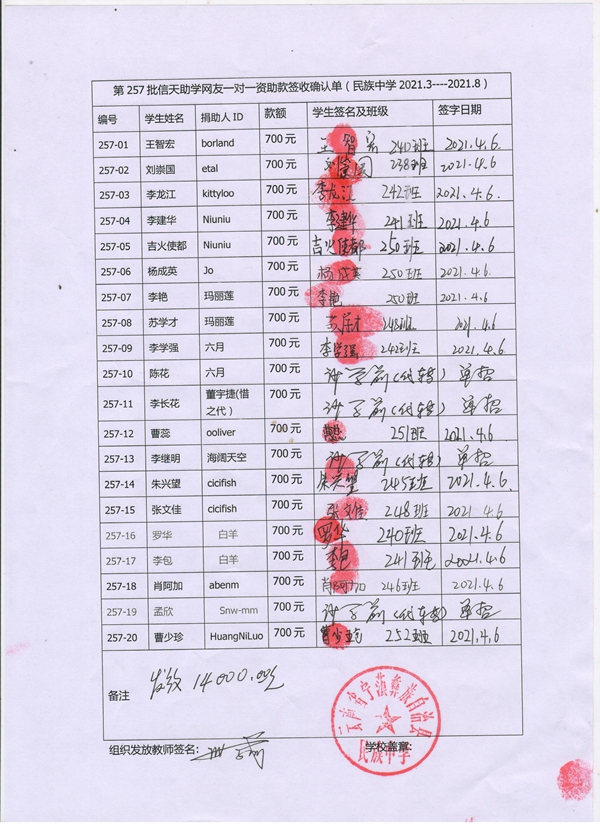 第 257 批信天助学网友一对一资助款签收确认单（民族中学 2021.3----2021.8）
编号 学生姓名 捐助人 ID 款额 学生签名及班级 签字日期
257-01 王智宏 borland 700 元 王智宏 240班 2021.4.6
257-02 刘崇国 etal 700 元 刘崇国 238班 2021.4.6
257-03 李龙江 kittyloo 700 元 李龙江 242班 2021.4.6
257-04 李建华 Niuniu 700 元 李建华 241班 2021.4.6
257-05 吉火使都 Niuniu 700 元 吉火使都 250班 2021.4.6
257-06 杨成英 Jo 700 元 杨成英 250班 2021.4.6
257-07 李艳 玛丽莲 700 元 李艳 250班 2021.4.6
257-08 苏学才 玛丽莲 700 元 苏学才 248班 2021.4.6
257-09 李学强 六月 700 元 李学强 242班 2021.4.6
257-10 陈花 六月 700 元 (代转) 单招
257-11 李长花 董宇捷(惜之代） 700 元 (代转) 单招
257-12 曹蕊 ooliver 700 元 251班 2021.4.6
257-13 李继明 海阔天空 700 元 (代转) 单招
257-14 朱兴望 cicifish 700 元 朱兴望 245班 2021.4.6
257-15 张文佳 cicifish 700 元 张文佳 248班 2021.4.6
257-16 罗华 白羊 700 元 罗华 240班 2021.4.6
257-17 李包 白羊 700 元 李包 241班 2021.4.6
257-18 肖阿加 abenm 700 元 肖阿加 246班 2021.4.6
257-19 孟欣 Snw-mm 700 元 (代转) 单招
257-20 曹少珍 HuangNiLuo 700 元 曹少珍 252班 2021.4.6
备注 发放 14000.00元
云南省宁蒗彝族自治县
民族中学
组织发放教师签名： 学校盖章：